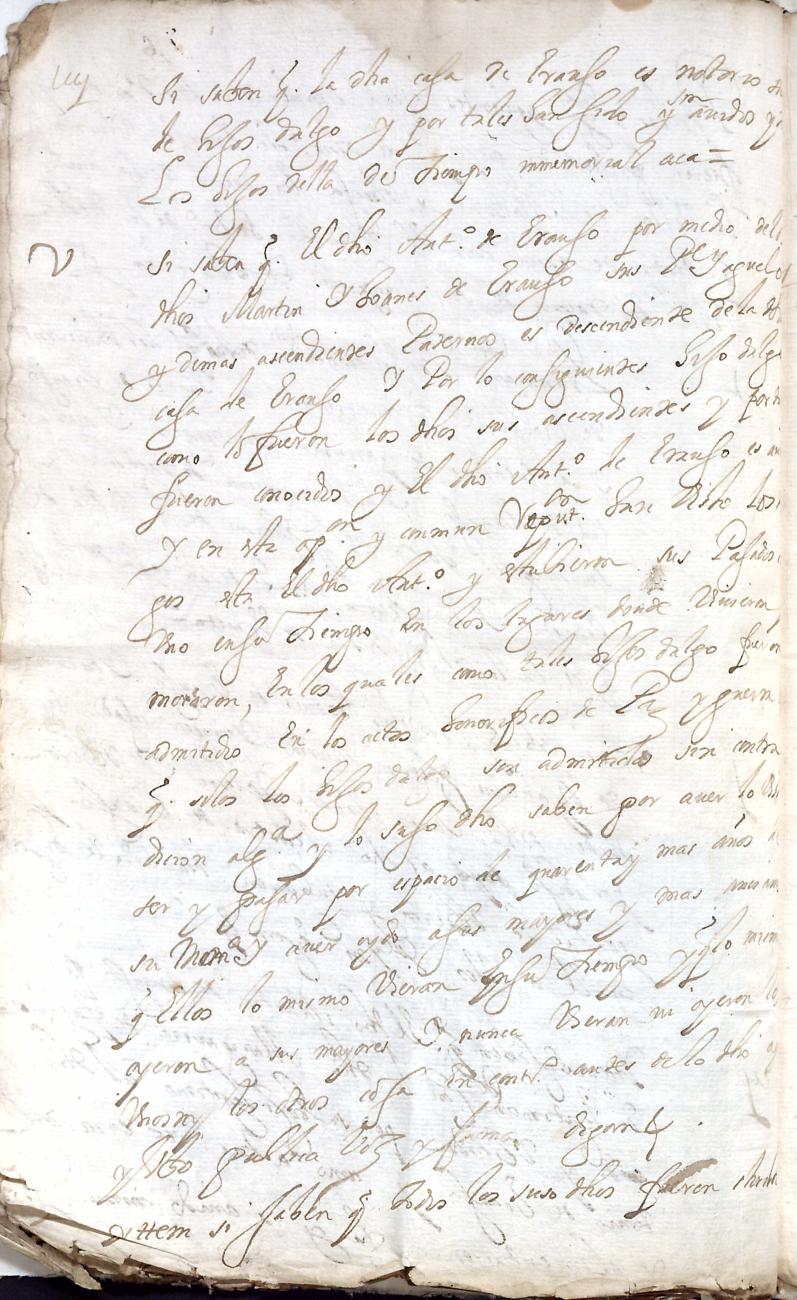 iiij
Si saben q. la dha casa de Erauso es notorio
de hijos dalgo y por tales han sido y son auidos y
Los hijos della de tiempo inmemorial aca =
V
Si saben q. El dho Ant.º de Erauso por medio del
dhos Martin y Joanes de Erauso sus P.e y aguelo
y demas ascendientes Paternos es descendiente de la dh
casa de Erauso y Por lo consiguientes hijo dalgo
como lo fueron los dhos sus ascendientes y por t
fueron conocidos y El dho Ant.º de Erauso es au
y en esta op.on y comun Reput.on han Visto los
gos esta El dho Ant.º y estubieron sus Pasados
uno en su tiempo En los lugares donde Viuieron
moraron, En los quales como tales hijos dalgo fueron
admitido En los actos honorificos de Paz y guerra
q. solos los hijos dalgo son admitidos sin contra
dicion alg.a y lo suso dho saben por auer lo Vis
ser y pasar por espacio de quarenta y mas años a
su Mem.a y auer oydo a sus mayores y mas ancian
q Ellos lo mismo Vieran En su tiempo y q lo mism
oyeron a sus mayores y nunca Vieran ni oyeron los
Vnos ny los otros cosa En contr.o antes de lo dho a
y Vbo publica boz y fama digan
Yttem si saben q todos los suso dhos fueron